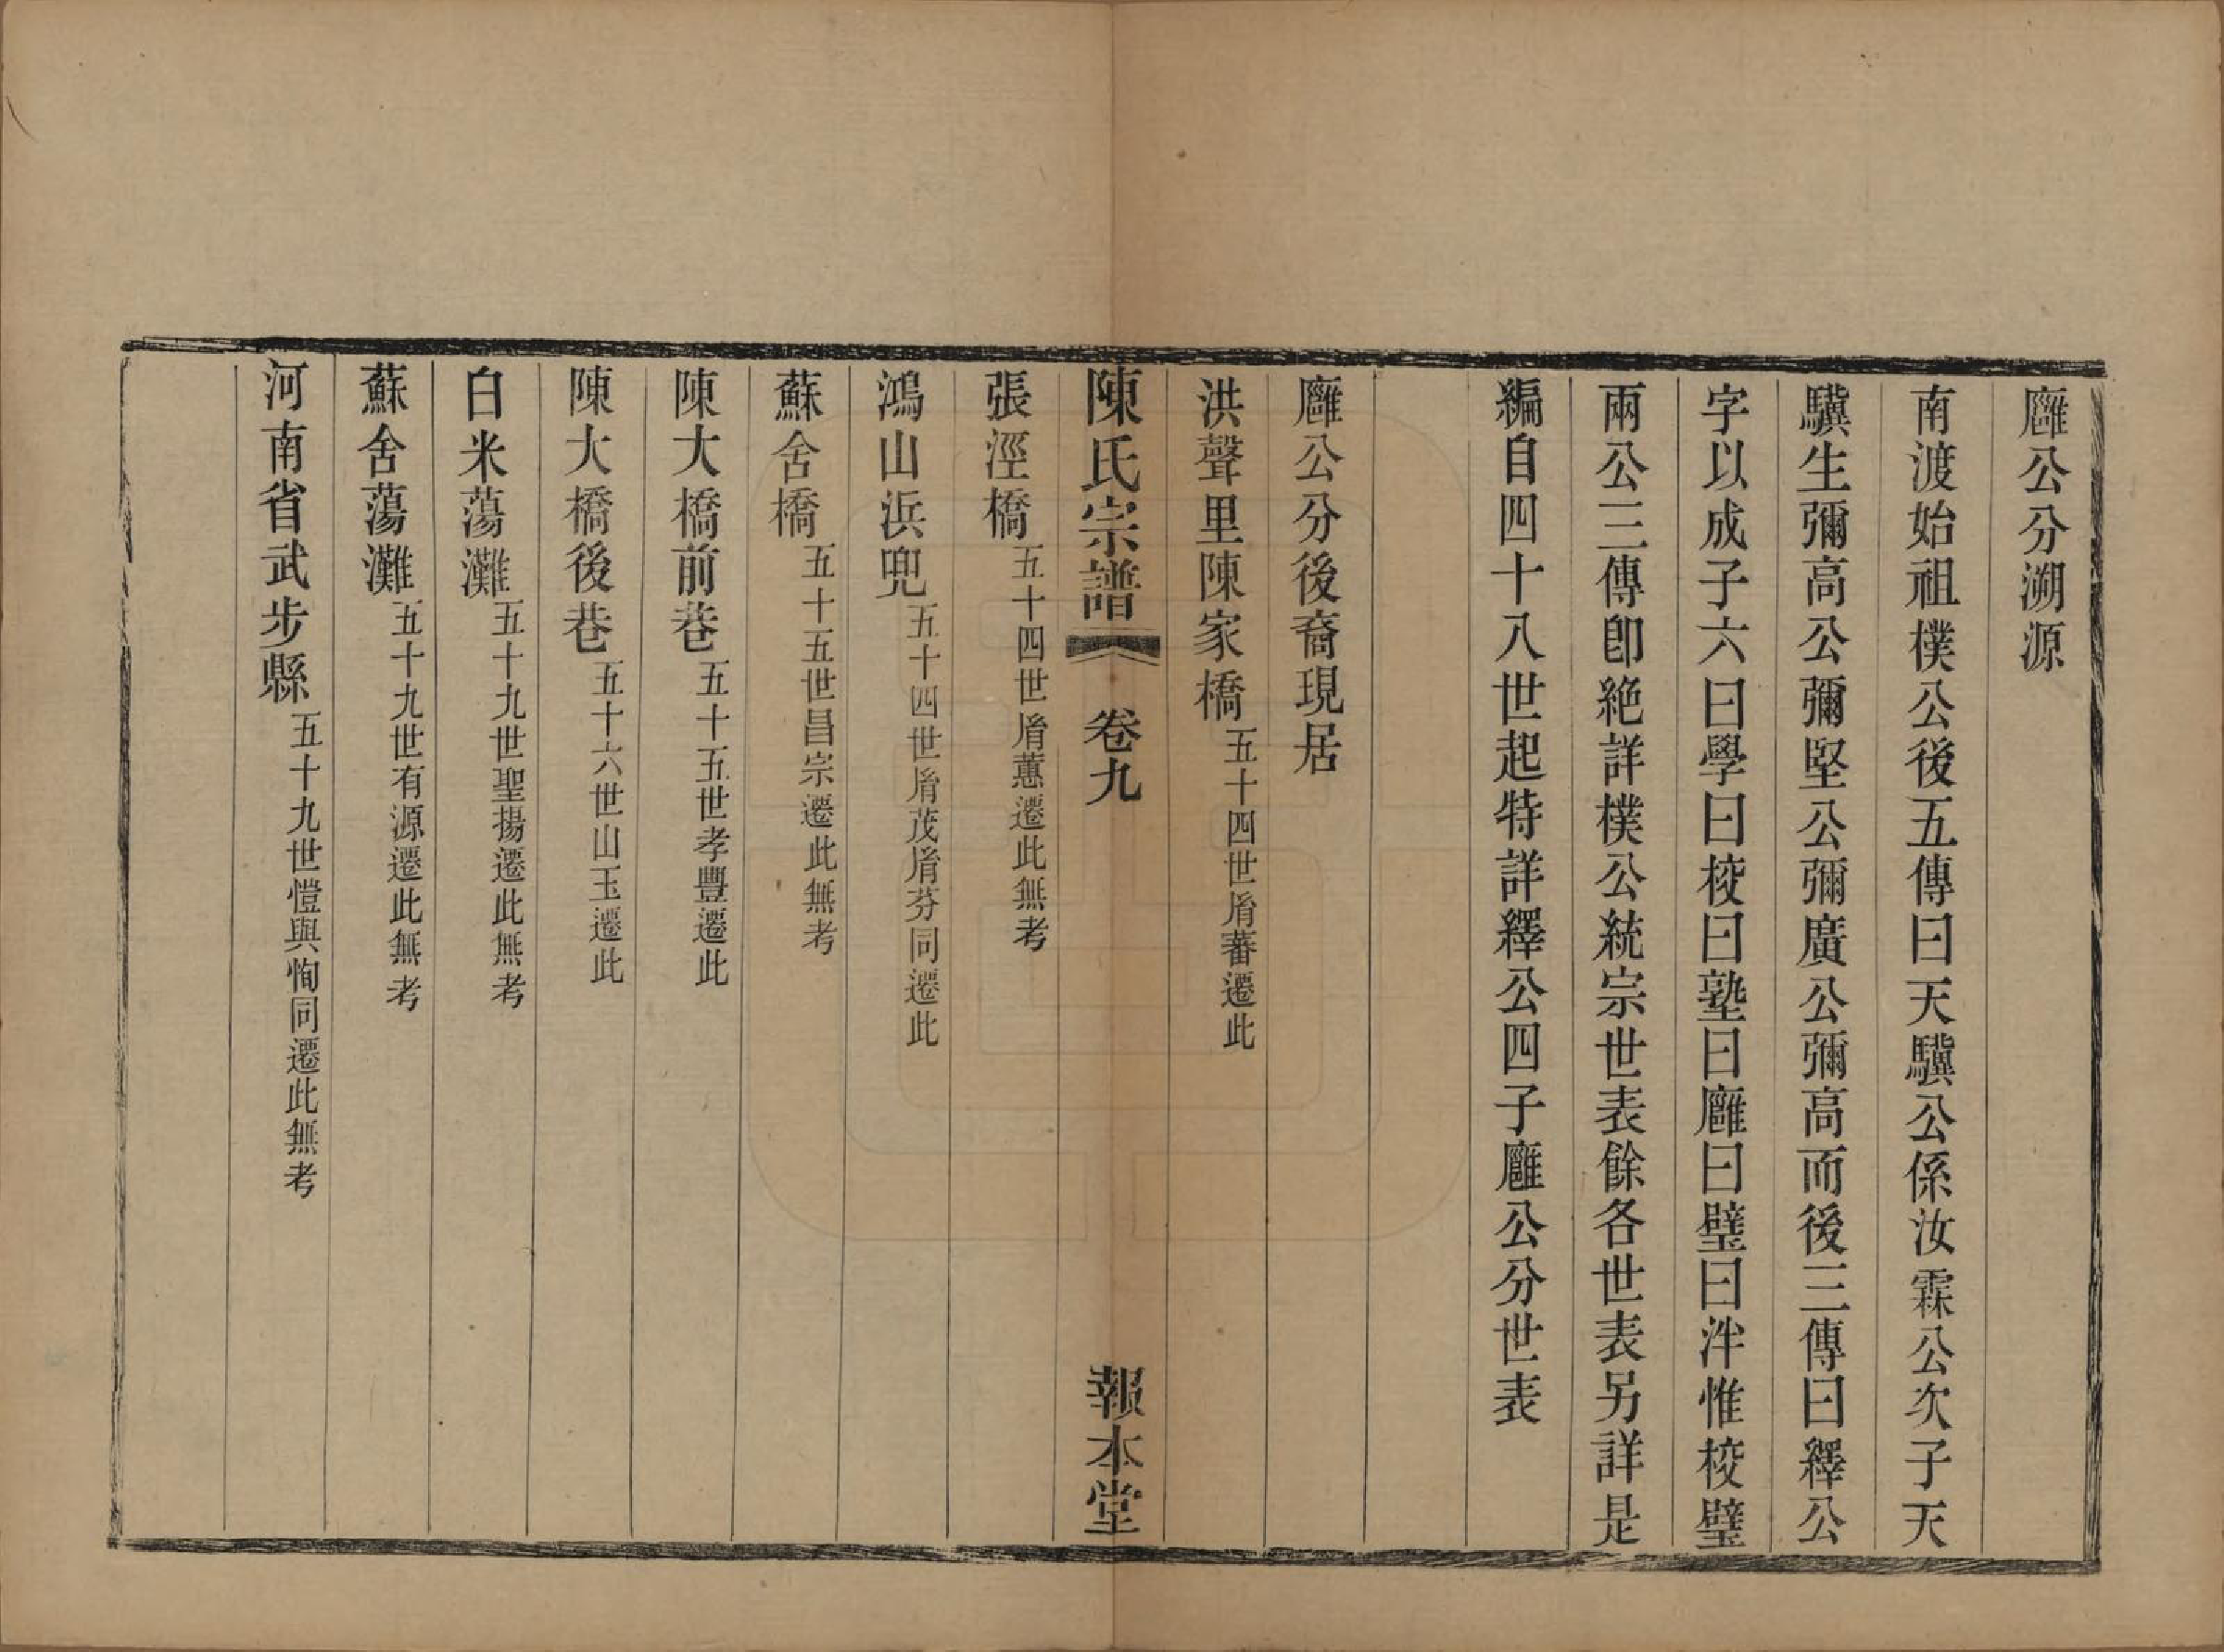 廱公分溯源
南渡始祖樸公後五傳曰天驥公係汝霖公次子天
驥生彌高公彌堅公彌廣公彌高而後三傳曰繹公
字以成子六曰學曰校曰塾曰廱曰璧曰泮惟校璧
兩公三傳卽絶詳樸公統宗世表餘各世表另詳是
編自四十八世起特詳繹公四子廱公分世表
廱公分後裔現居
洪聲里陳家橋五十四世㡽蕃遷此
陳氏宗譜 卷九 報本堂
張涇橋五十四世㡽蕙遷此無考
鴻山浜兜五十四世㡽茂㡽芬同遷此
蘇舍橋五十五世昌宗遷此無考
陳大橋前巷五十五世孝豐遷此
陳大橋後巷五十六世山玉遷此
白米蕩灘五十九世聖揚遷此無考
蘇舍蕩灘五十九世有源遷此無考
河南省武步縣五十九世愷與恂同遷此無考